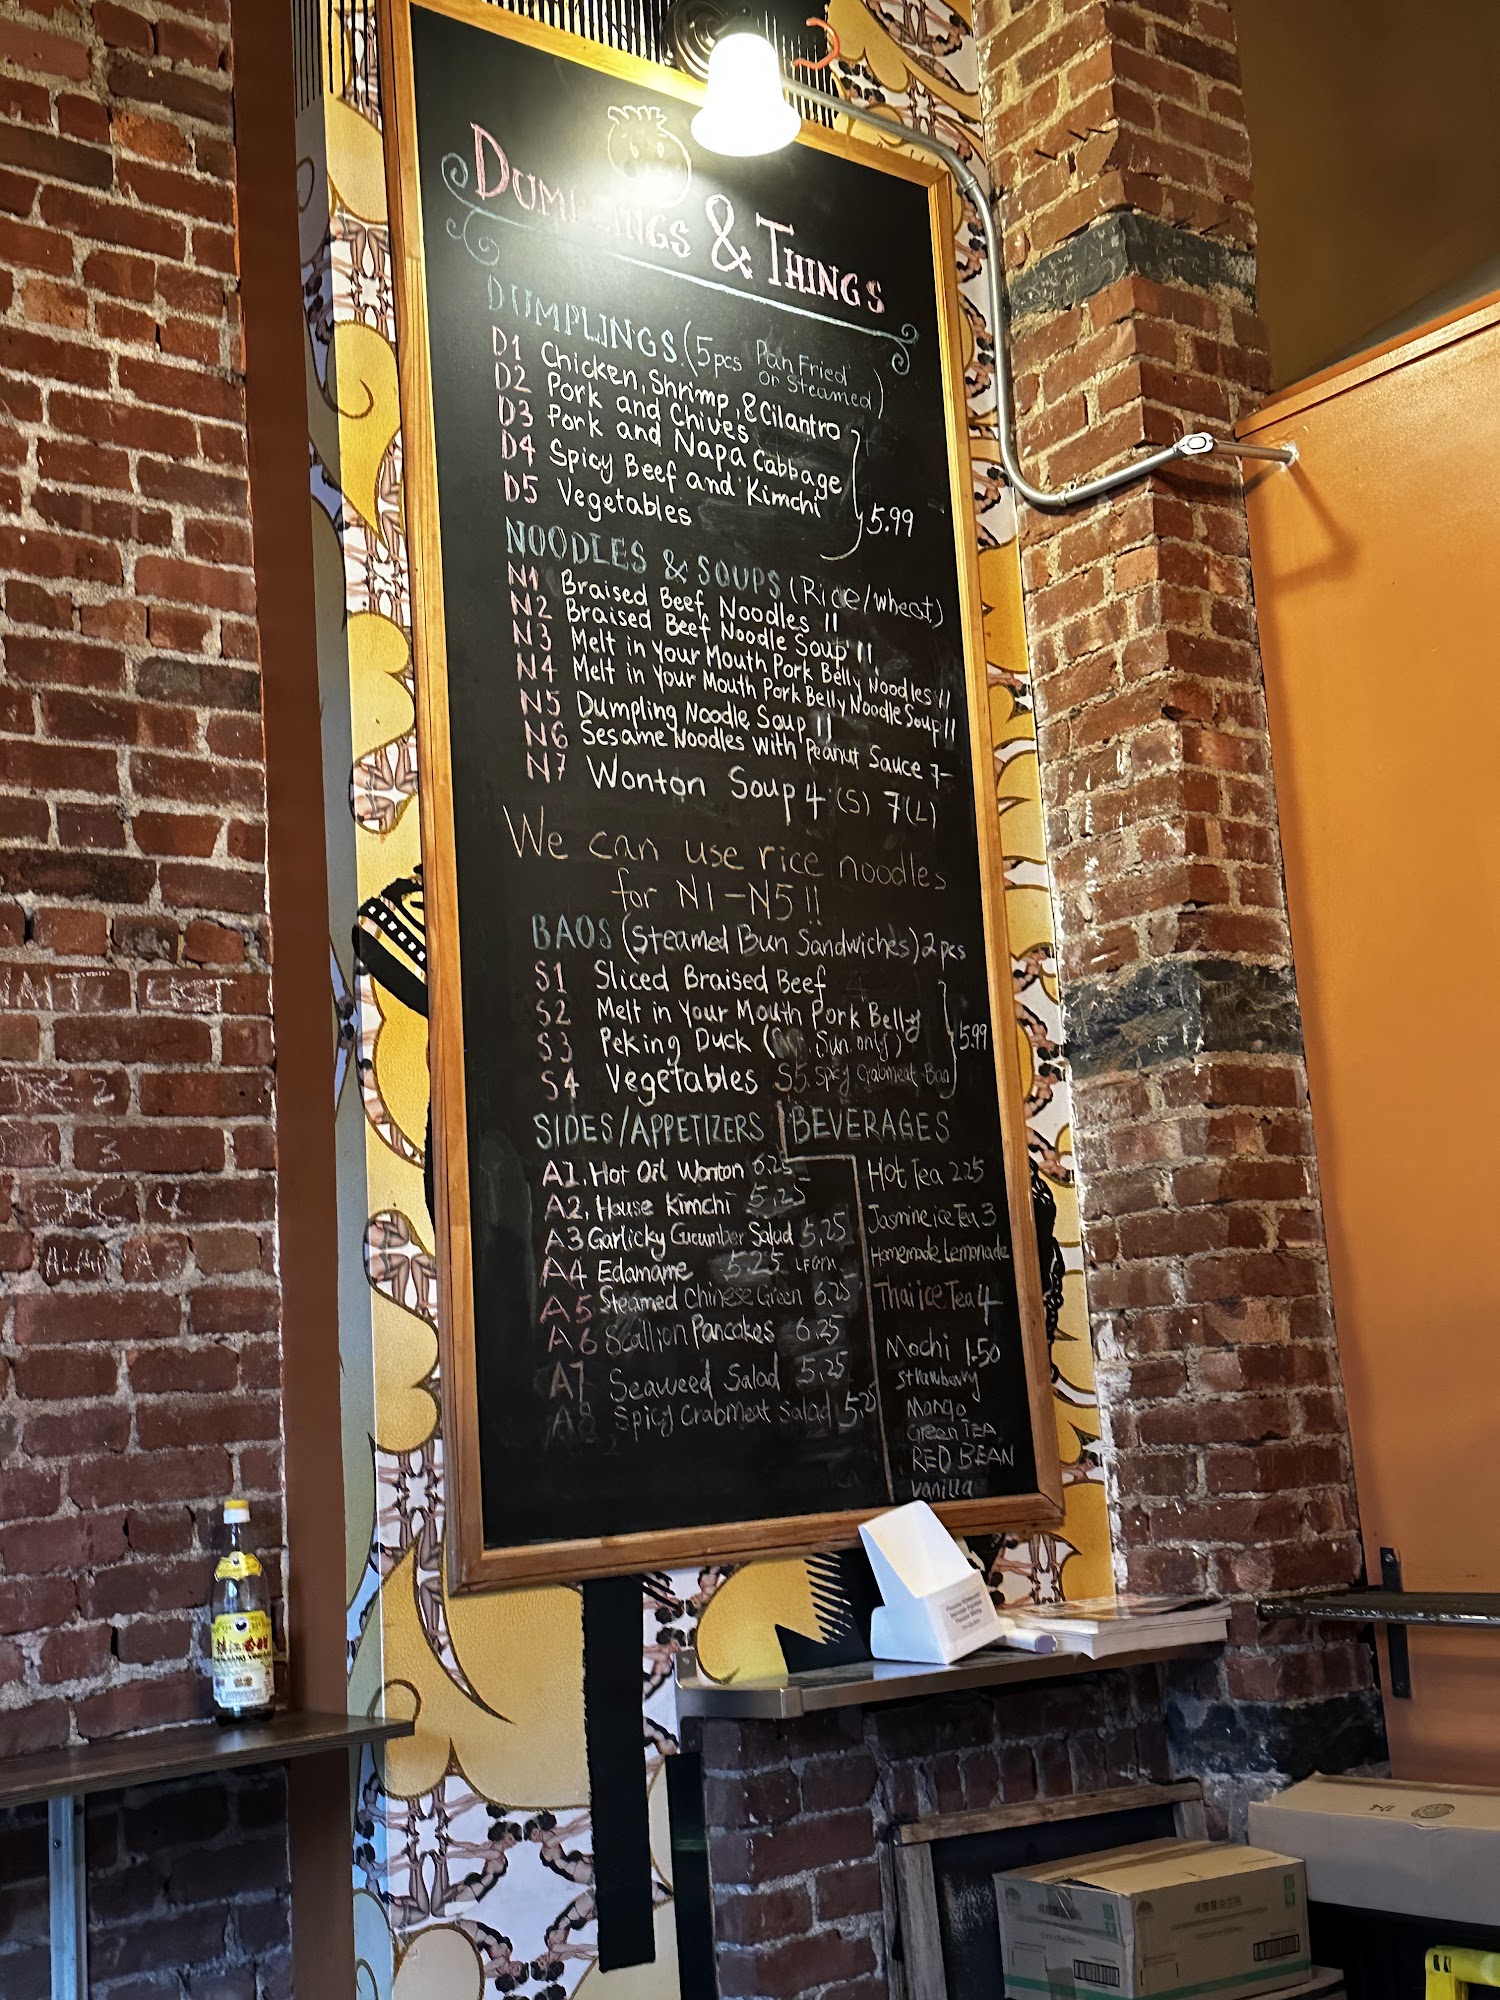 DUMPLINGS & THINGS
DUMPLINGS (5pcs Pan Fried or Steamed)
D1 Chicken, Shrimp, & Cilantro
D2 Pork and Chives
D3 Pork and Napa Cabbage
D4 Spicy Beef and Kimchi
D5 Vegetables
5.99
NOODLES & SOUPS (Rice/wheat)
N1 Braised Beef Noodles 11
N2 Braised Beef Noodle Soup 11
N3 Melt in Your Mouth Pork Belly Noodles 11
N4 Melt in Your Mouth Pork Belly Noodle Soup 11
N5 Dumpling Noodle Soup 11
N6 Sesame Noodles with Peanut Sauce 7-
N7 Wonton Soup 4 (S) 7 (L)
We can use rice noodles
for N1-N5!!
BAOS (Steamed Bun Sandwiches) 2pcs
S1 Sliced Braised Beef
S2 Melt in Your Mouth Pork Belly
S3 Peking Duck (Sun. only)
S4 Vegetables S5. Spicy Crabmeat Bao
5.99
SIDES/APPETIZERS
A1. Hot Oil Wonton 6.25
A2. House Kimchi 5.25
A3 Garlicky Cucumber Salad 5.25
A4 Edamame 5.25
A5 Steamed Chinese Green 6.25
A6 Scallion Pancakes 6.25
A7 Seaweed Salad 5.25
A8 Spicy Crabmeat Salad 5.25
BEVERAGES
Hot Tea 2.25
Jasmine ice Tea 3
Homemade Lemonade
Thai ice Tea 4
Mochi 1.50
Strawberry
Mango
Green TEA
RED BEAN
Vanilla